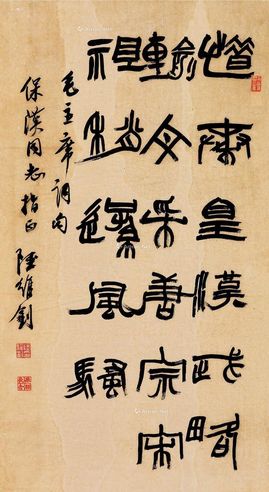 惜秦皇漢武略
輸文采唐宗宋
祖稍遜風騷
毛主席詞句
保漢同志指正 陸維釗